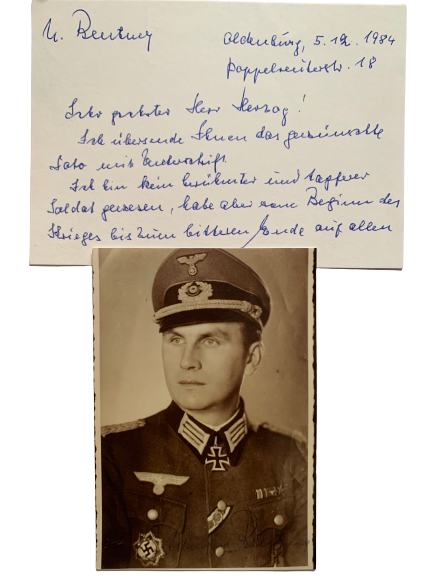 Oldenburg, 5.12.1984
Poppelreuterstr. 18
Sehr geehrter Herr Herzog!
Ich übersende Ihnen das gewünschte
Foto mit Unterschrift
Ich bin kein berühmter und tapferer
Soldat gewesen, habe aber vom Beginn des
Krieges bis zum bitteren Ende auf allen